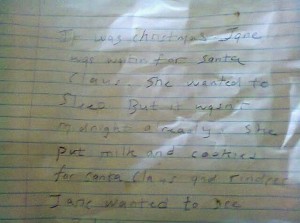 It was christmas. Jane
was waitin for santa
Claus. She wanted to
Sleep But it wasn't
midnight already. She
put milk and cookies
for santa Claus and
Jane wanted to see